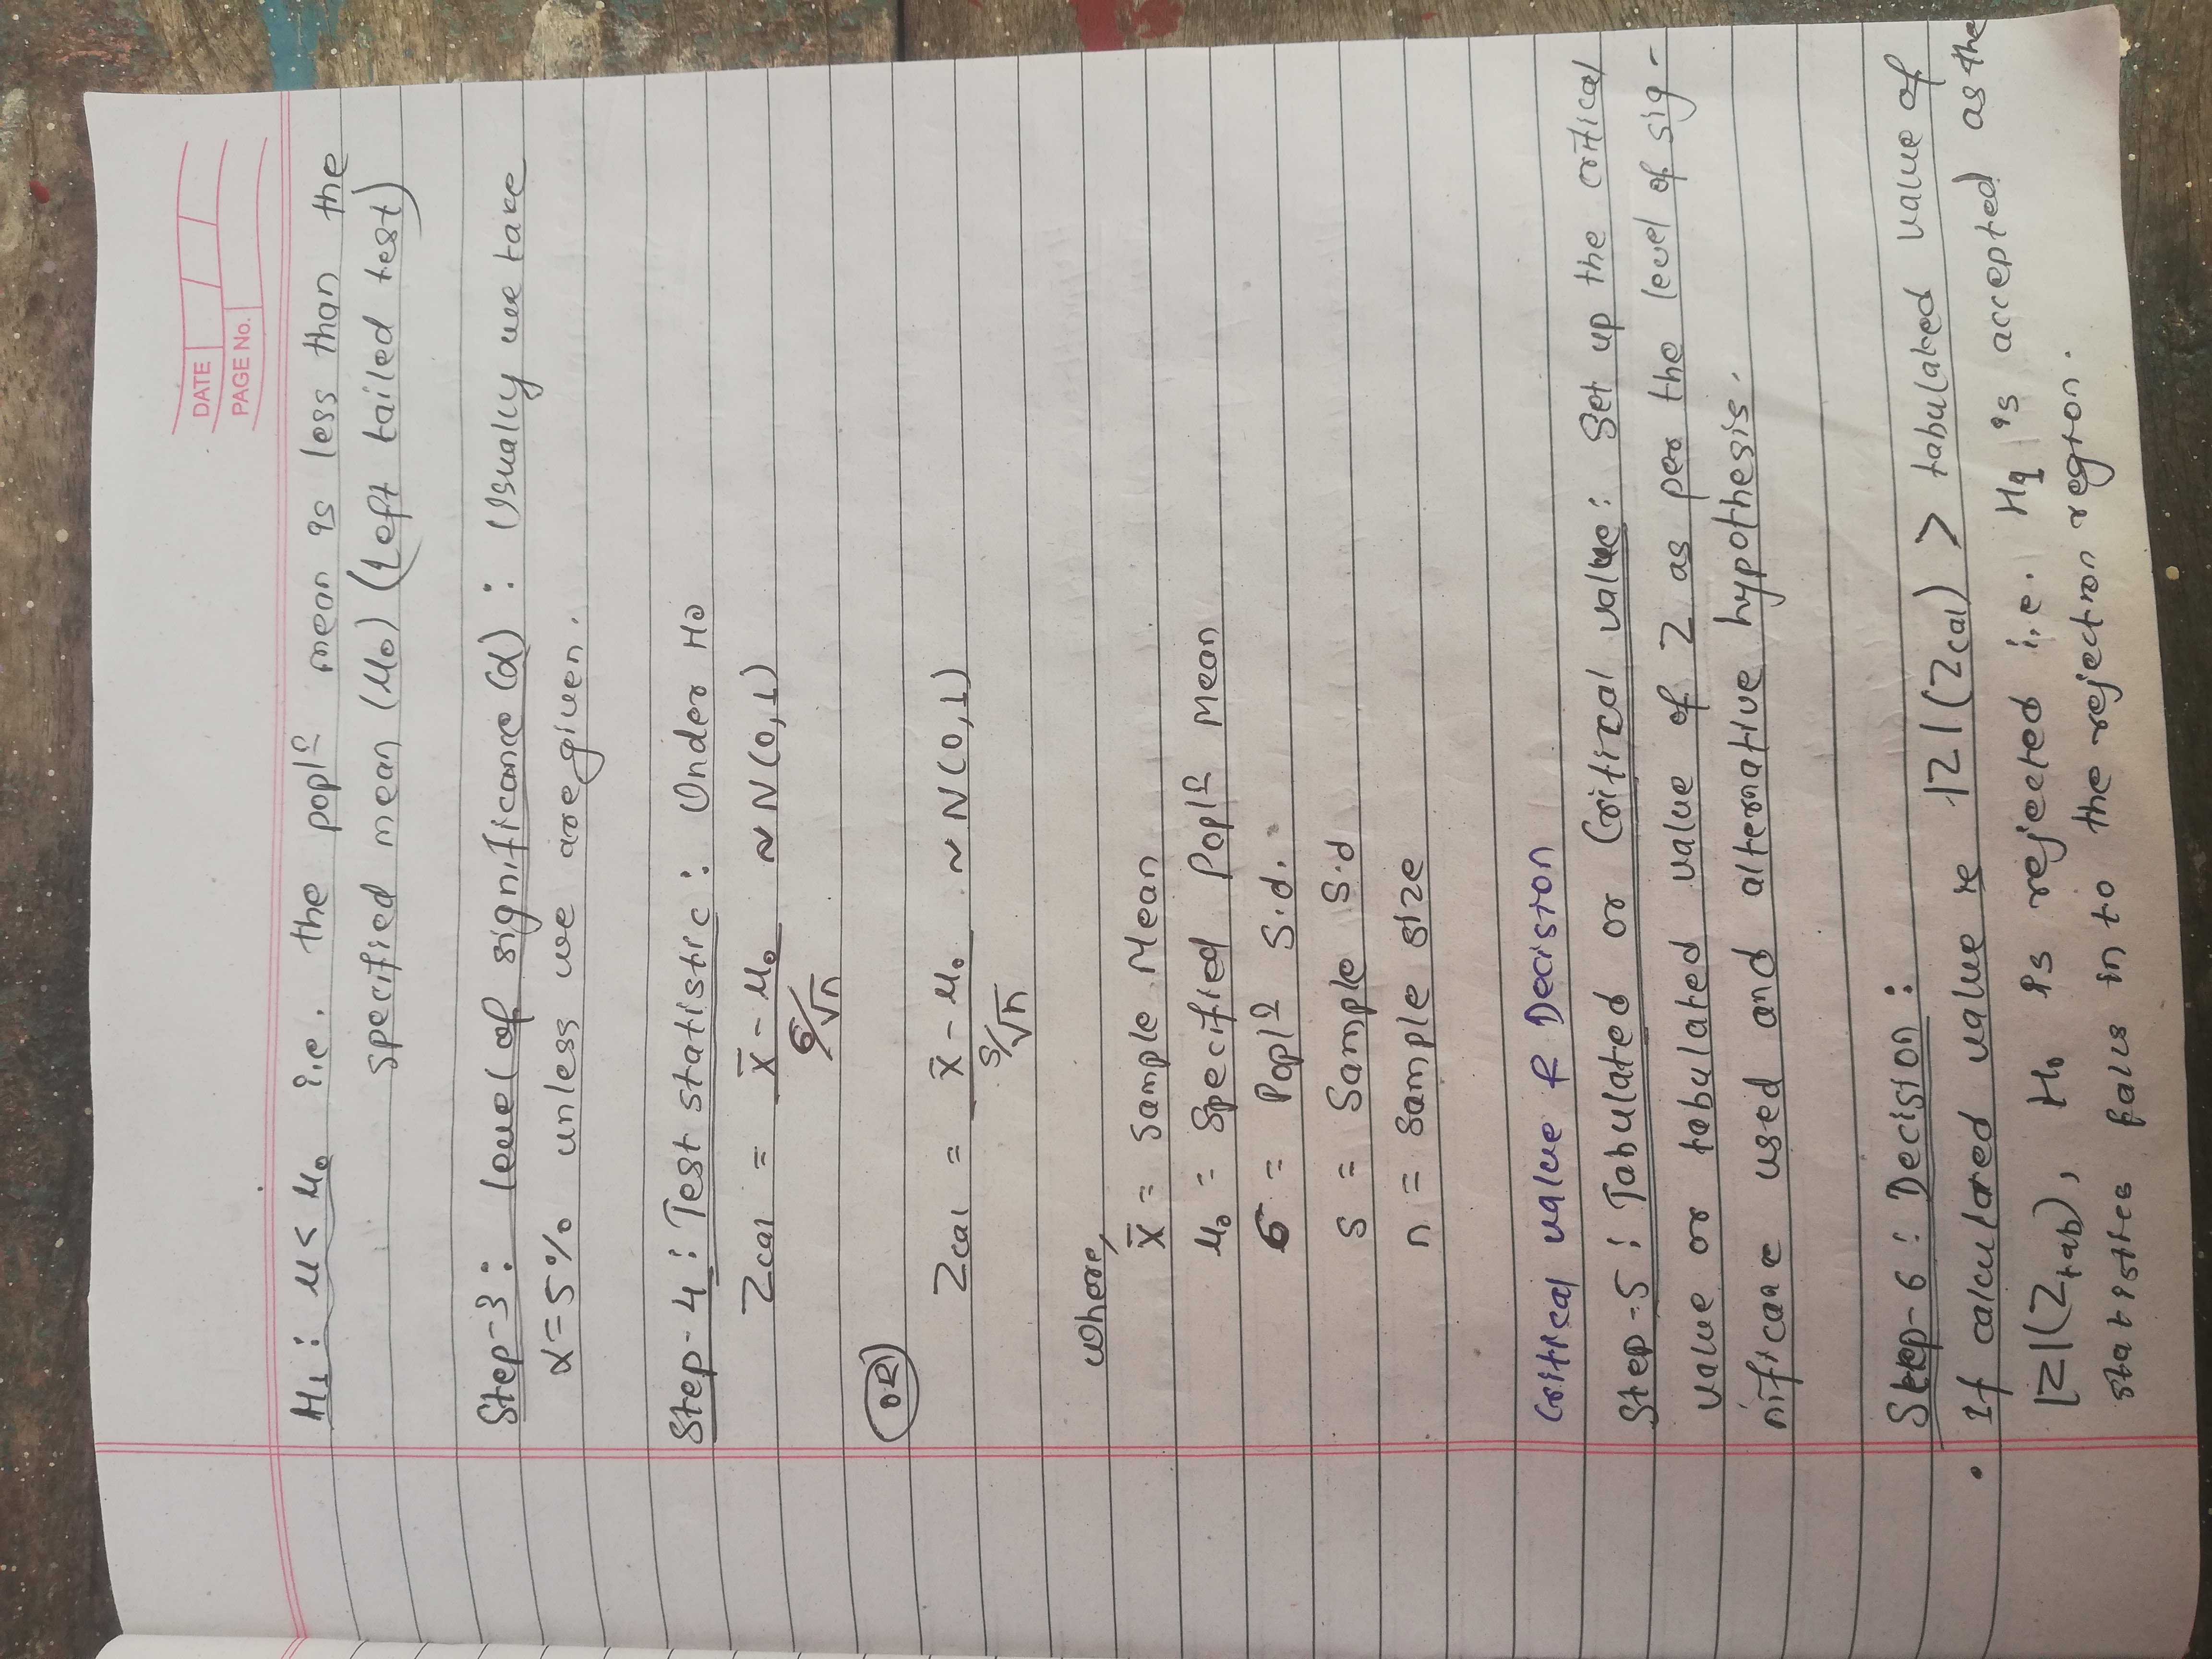 DATE
PAGE No.
H₁ : μ < μ₀ i.e. the poplⁿ mean is less than the
specified mean (μ₀) (Left tailed test)
Step-3 : level of significance (α) : Usually we take
α = 5% unless we are given.
Step-4 : Test statistic : Under H₀
Zcal = x̄ - μ₀ / σ/√n ~ N(0,1)
OR
Zcal = x̄ - μ₀ / s/√n ~ N(0,1)
where,
x̄ = Sample Mean
μ₀ = Specified Poplⁿ Mean
σ = Poplⁿ S.d.
s = Sample S.d
n = Sample size
Critical value & Decision
Step-5 : Tabulated or Critical value : Set up the critical
value or tabulated value of Z as per the level of sig-
nificance used and alternative hypothesis.
Step-6 : Decision :
• If calculated value is |Z| (Zcal) > tabulated value of
|Z| (Ztab), H₀ is rejected i.e. H₁ is accepted as the
statistics falls in to the rejection region.